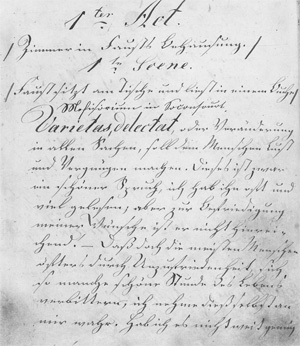 1ter Act.
/ Zimmer in Fausts Behausung. /
1te Scene.
/ Faust sitzt am Tische und liest in einem Buche /
Varietas delectat, oder Veränderung
in allen Sachen, soll dem Menschen Lust
und Vergnügen machen. Dieses ist zwar
ein schöner Spruch, ich hab ihn oft und
viel gelesen, aber zur Befriedigung
meiner Wünsche ist er nicht hinrei-
chend. — Daß doch die meisten Menschen
öfters durch Unzufriedenheit, sich
so manche schöne Stunde des Lebens
verbittern, ich nehme dieß selbst an
mir wahr. Hab ich es nicht weit genug